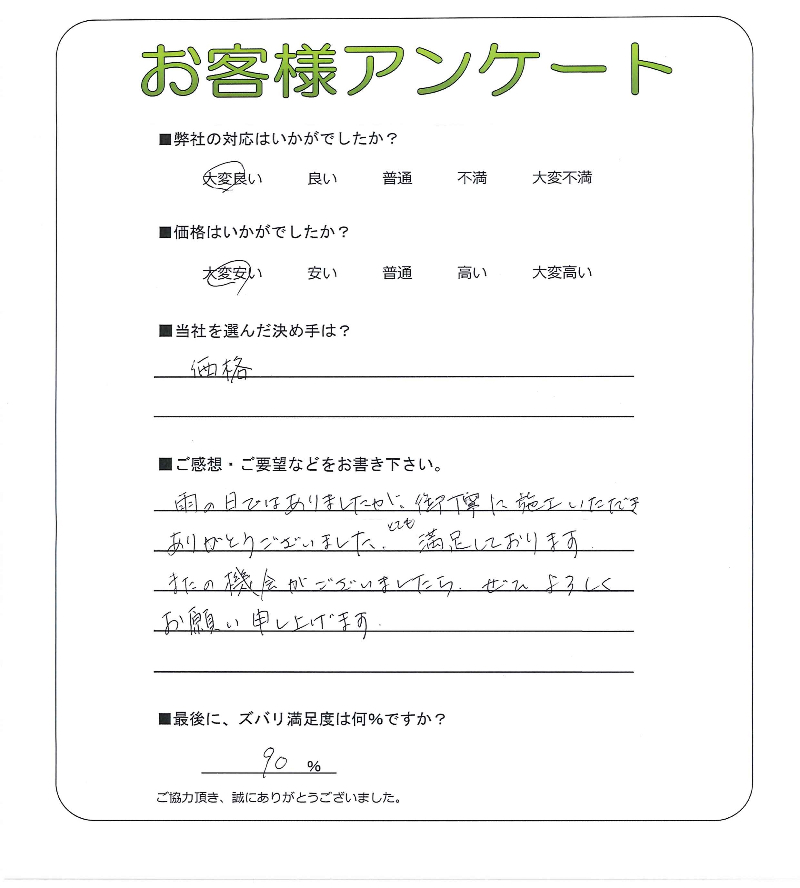 お客様アンケート
■弊社の対応はいかがでしたか？
大変良い 良い 普通 不満 大変不満
■価格はいかがでしたか？
大変安い 安い 普通 高い 大変高い
■当社を選んだ決め手は？
価格
■ご感想・ご要望などをお書き下さい。
雨の日ではありましたが、御丁寧に施工いただき
ありがとうございました。とても満足しております。
またの機会がございましたら、ぜひよろしく
お願い申し上げます。
■最後に、ズバリ満足度は何%ですか？
90 %
ご協力頂き、誠にありがとうございました。